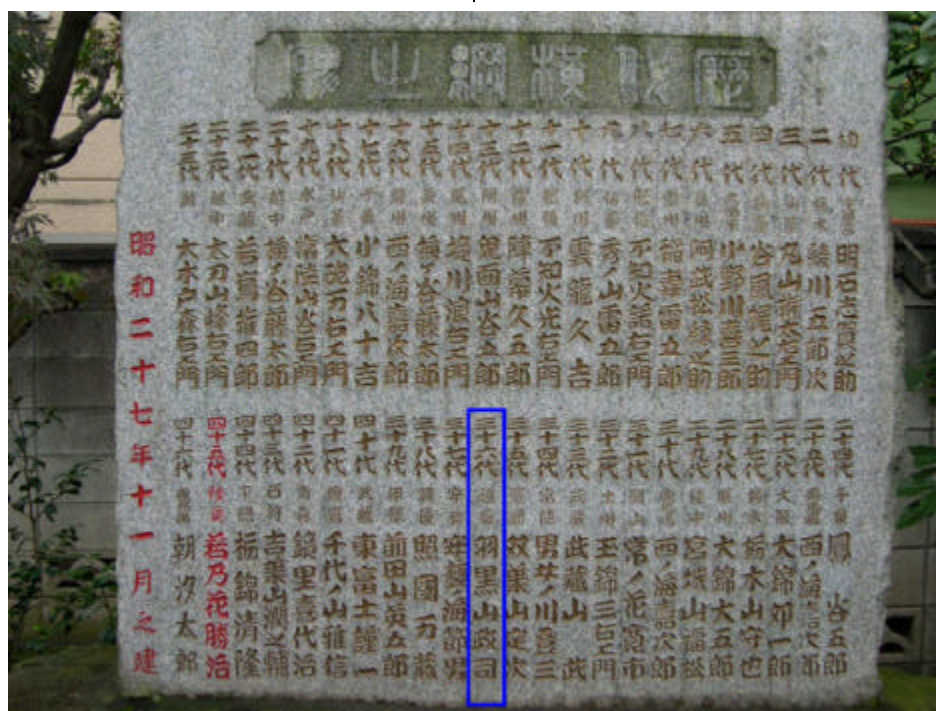 歴代横綱之碑
初代 明石志賀之助
二代 綾川五郎次
三代 丸山権太左エ門
四代 谷風梶之助
五代 小野川喜三郎
六代 阿武松緑之助
七代 稲妻雷五郎
八代 不知火諾右エ門
九代 秀ノ山雷五郎
十代 雲龍久吉
十一代 不知火光右エ門
十二代 陣幕久五郎
十三代 鬼面山谷五郎
十四代 境川浪右エ門
十五代 梅ヶ谷藤太郎
十六代 西ノ海嘉次郎
十七代 小錦八十吉
十八代 大砲万右エ門
十九代 常陸山谷右エ門
二十代 越中 梅ヶ谷藤太郎
二十一代 若嶌権四郎
二十二代 越中 太刀山峰右エ門
二十三代 大木戸森右エ門
二十四代 千葉 鳳谷五郎
二十五代 西ノ海嘉次郎
二十六代 大阪 大錦卯一郎
二十七代 栃木 栃木山守也
二十八代 大錦大五郎
二十九代 宮城山福松
三十代 西ノ海嘉次郎
三十一代 岡山 常ノ花寛市
三十二代 玉錦三右エ門
三十三代 武蔵山武
三十四代 男女ノ川登三
三十五代 双葉山定次
三十六代 羽黒山政司
三十七代 安芸ノ海節男
三十八代 照國万蔵
三十九代 前田山英五郎
四十代 東富士謹一
四十一代 千代ノ山雅信
四十二代 鏡里喜代治
四十三代 吉葉山潤之輔
四十四代 下総 栃錦清隆
四十五代 若乃花勝治
四十六代 朝汐太郎
昭和二十七年十一月之建